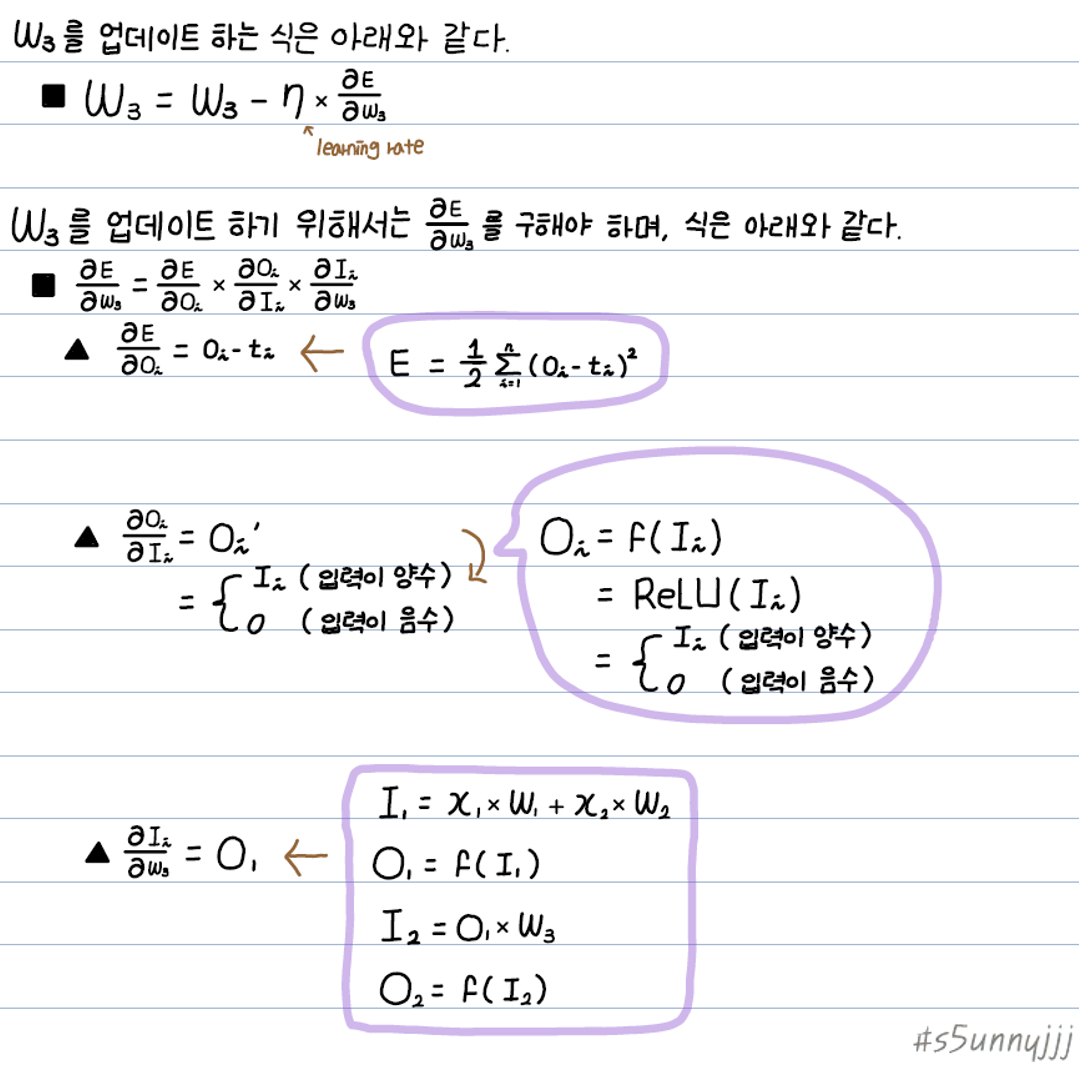 W₃를 업데이트 하는 식은 아래와 같다.
■ W₃ = W₃ - η × ∂E/∂W₃
learning rate
W₃를 업데이트 하기 위해서는 ∂E/∂W₃를 구해야 하며, 식은 아래와 같다.
■ ∂E/∂W₃ = ∂E/∂Oᵢ × ∂Oᵢ/∂Iᵢ × ∂Iᵢ/∂W₃
▲ ∂E/∂Oᵢ = Oᵢ - tᵢ ← E = 1/2 Σⁿᵢ₌₁ (Oᵢ - tᵢ)²
▲ ∂Oᵢ/∂Iᵢ = Oᵢ′
= { Iᵢ (입력이 양수)
0 (입력이 음수)
Oᵢ = f(Iᵢ)
= ReLU(Iᵢ)
= { Iᵢ (입력이 양수)
0 (입력이 음수)
▲ ∂Iᵢ/∂W₃ = O₁ ←
I₁ = x₁ × W₁ + x₂ × W₂
O₁ = f(I₁)
I₂ = O₁ × W₃
O₂ = f(I₂)
#s5unnyjjj